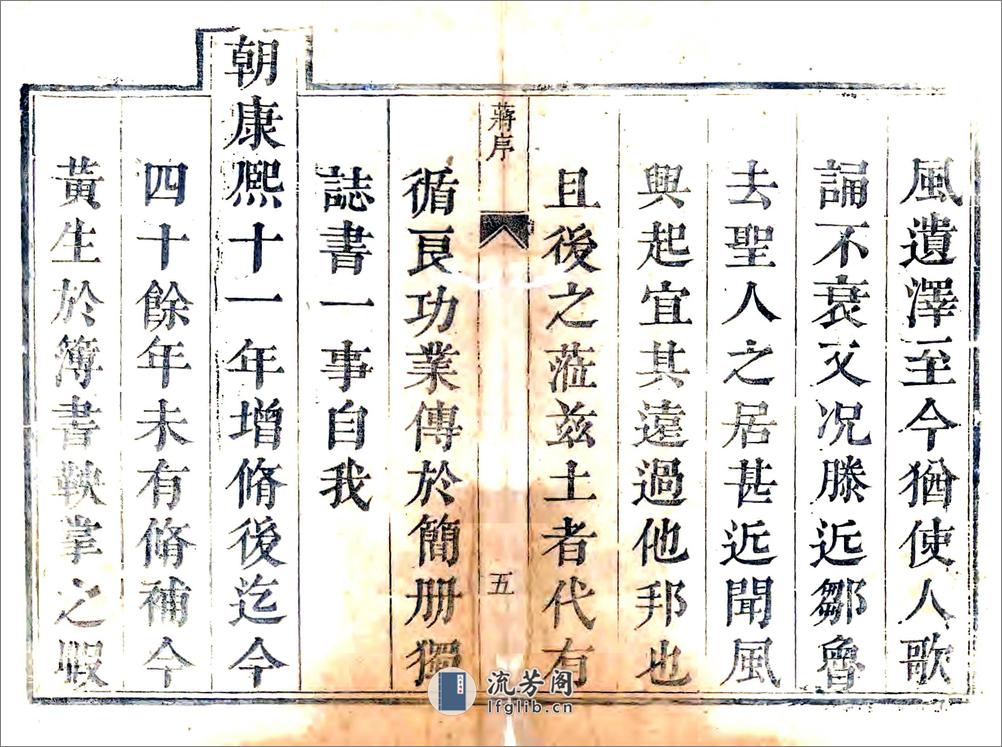 風遺澤至今猶使人歌
誦不衰又况滕近鄒魯
去聖人之居甚近聞風
興起宜其遠過他邦也
且後之蒞兹土者代有
蔣序
五
循良功業傳於簡册獨
誌書一事自我
朝康熙十一年增脩後迄今
四十餘年未有脩補今
黃生於簿書鞅掌之暇
流芳阁
lfglib.cn